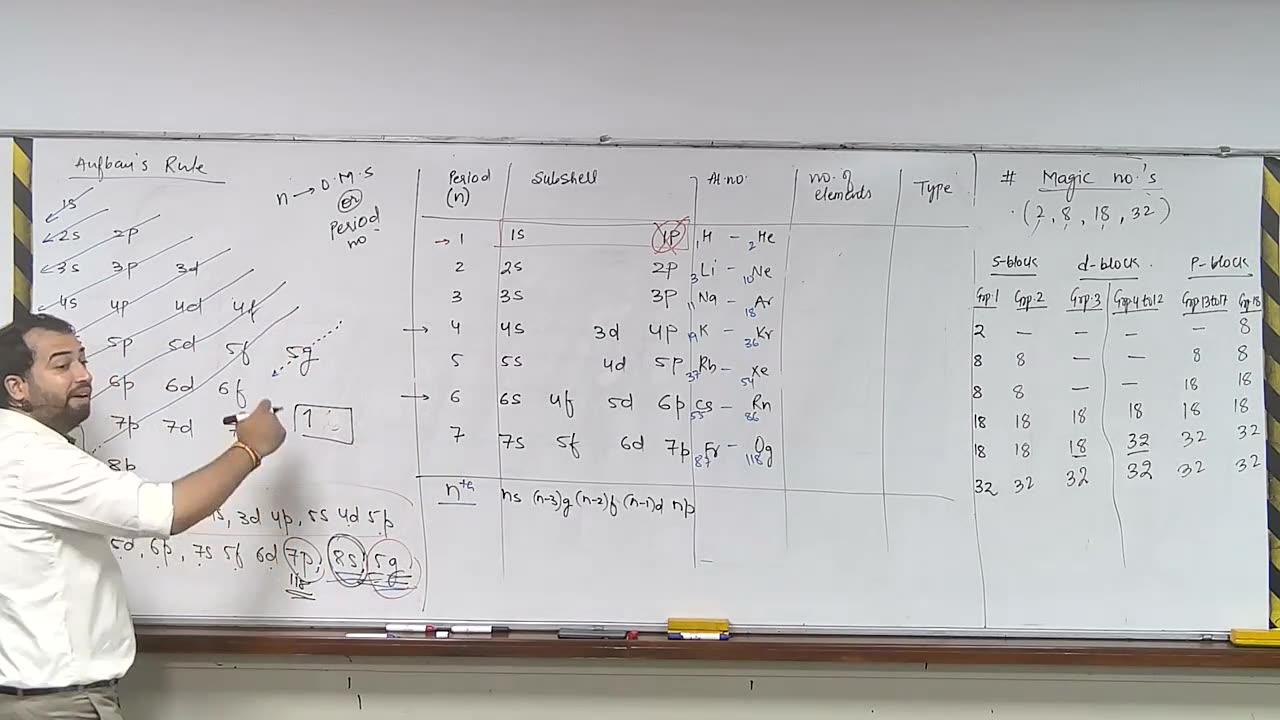 Aufbau's Rule
1s
2s 2p
3s 3p 3d
4s 4p 4d 4f
5p 5d 5f 5g
6p 6d 6f
7p 7d
8p
n → O.M.S
or
Period
no
3d 4p, 5s 4d 5p
5d, 6p, 7s 5f 6d 7p, 8s, 5g,
118
Period (n) Subshell At.no. no. of elements Type
→ 1 1s 1p 1H - 2He
2 2s 2p 3Li - 10Ne
3 3s 3p 11Na - 18Ar
→ 4 4s 3d 4p 19K - 36Kr
5 5s 4d 5p 37Rb - 54Xe
→ 6 6s 4f 5d 6p 55Cs - 86Rn
7 7s 5f 6d 7p 87Fr - 118Og
nth ns (n-3)g (n-2)f (n-1)d np
# Magic no.'s
(2, 8, 18, 32)
S-block d-block P-block
Grp.1 Grp.2 Grp.3 Grp 4 to 12 Grp 13 to 17 Grp 18
2 - - - - 8
8 8 - - 8 8
8 8 - - 18 18
18 18 18 18 18 18
18 18 18 32 32 32
32 32 32 32 32 32